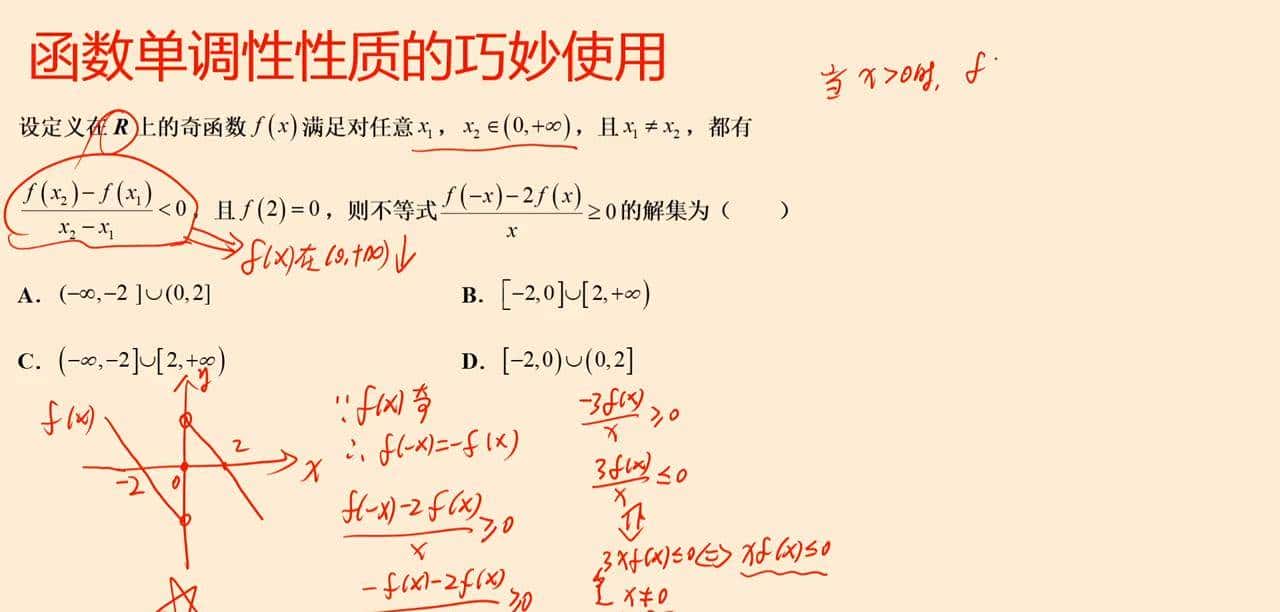 函数单调性性质的巧妙使用
当 x>0时, f
设定义在 R 上的奇函数 f(x) 满足对任意 x₁, x₂∈(0,+∞), 且 x₁≠x₂, 都有
(f(x₂)−f(x₁))/(x₂−x₁)<0, 且 f(2)=0, 则不等式 (f(−x)−2f(x))/x ≥0 的解集为（　　）
f(x)在(0,+∞)↓
A. (−∞,−2 ]∪(0,2]
B. [−2,0]∪[2,+∞)
C. (−∞,−2]∪[2,+∞)
D. [−2,0)∪(0,2]
y
f(x)
2
x
−2
0
∵f(x)奇
∴f(−x)=−f(x)
(f(−x)−2f(x))/x ≥0
(−f(x)−2f(x)) ≥0
(−3f(x))/x ≥0
(3f(x))/x ≤0
⇕
{ 3xf(x)≤0 ⇔ xf(x)≤0
x≠0